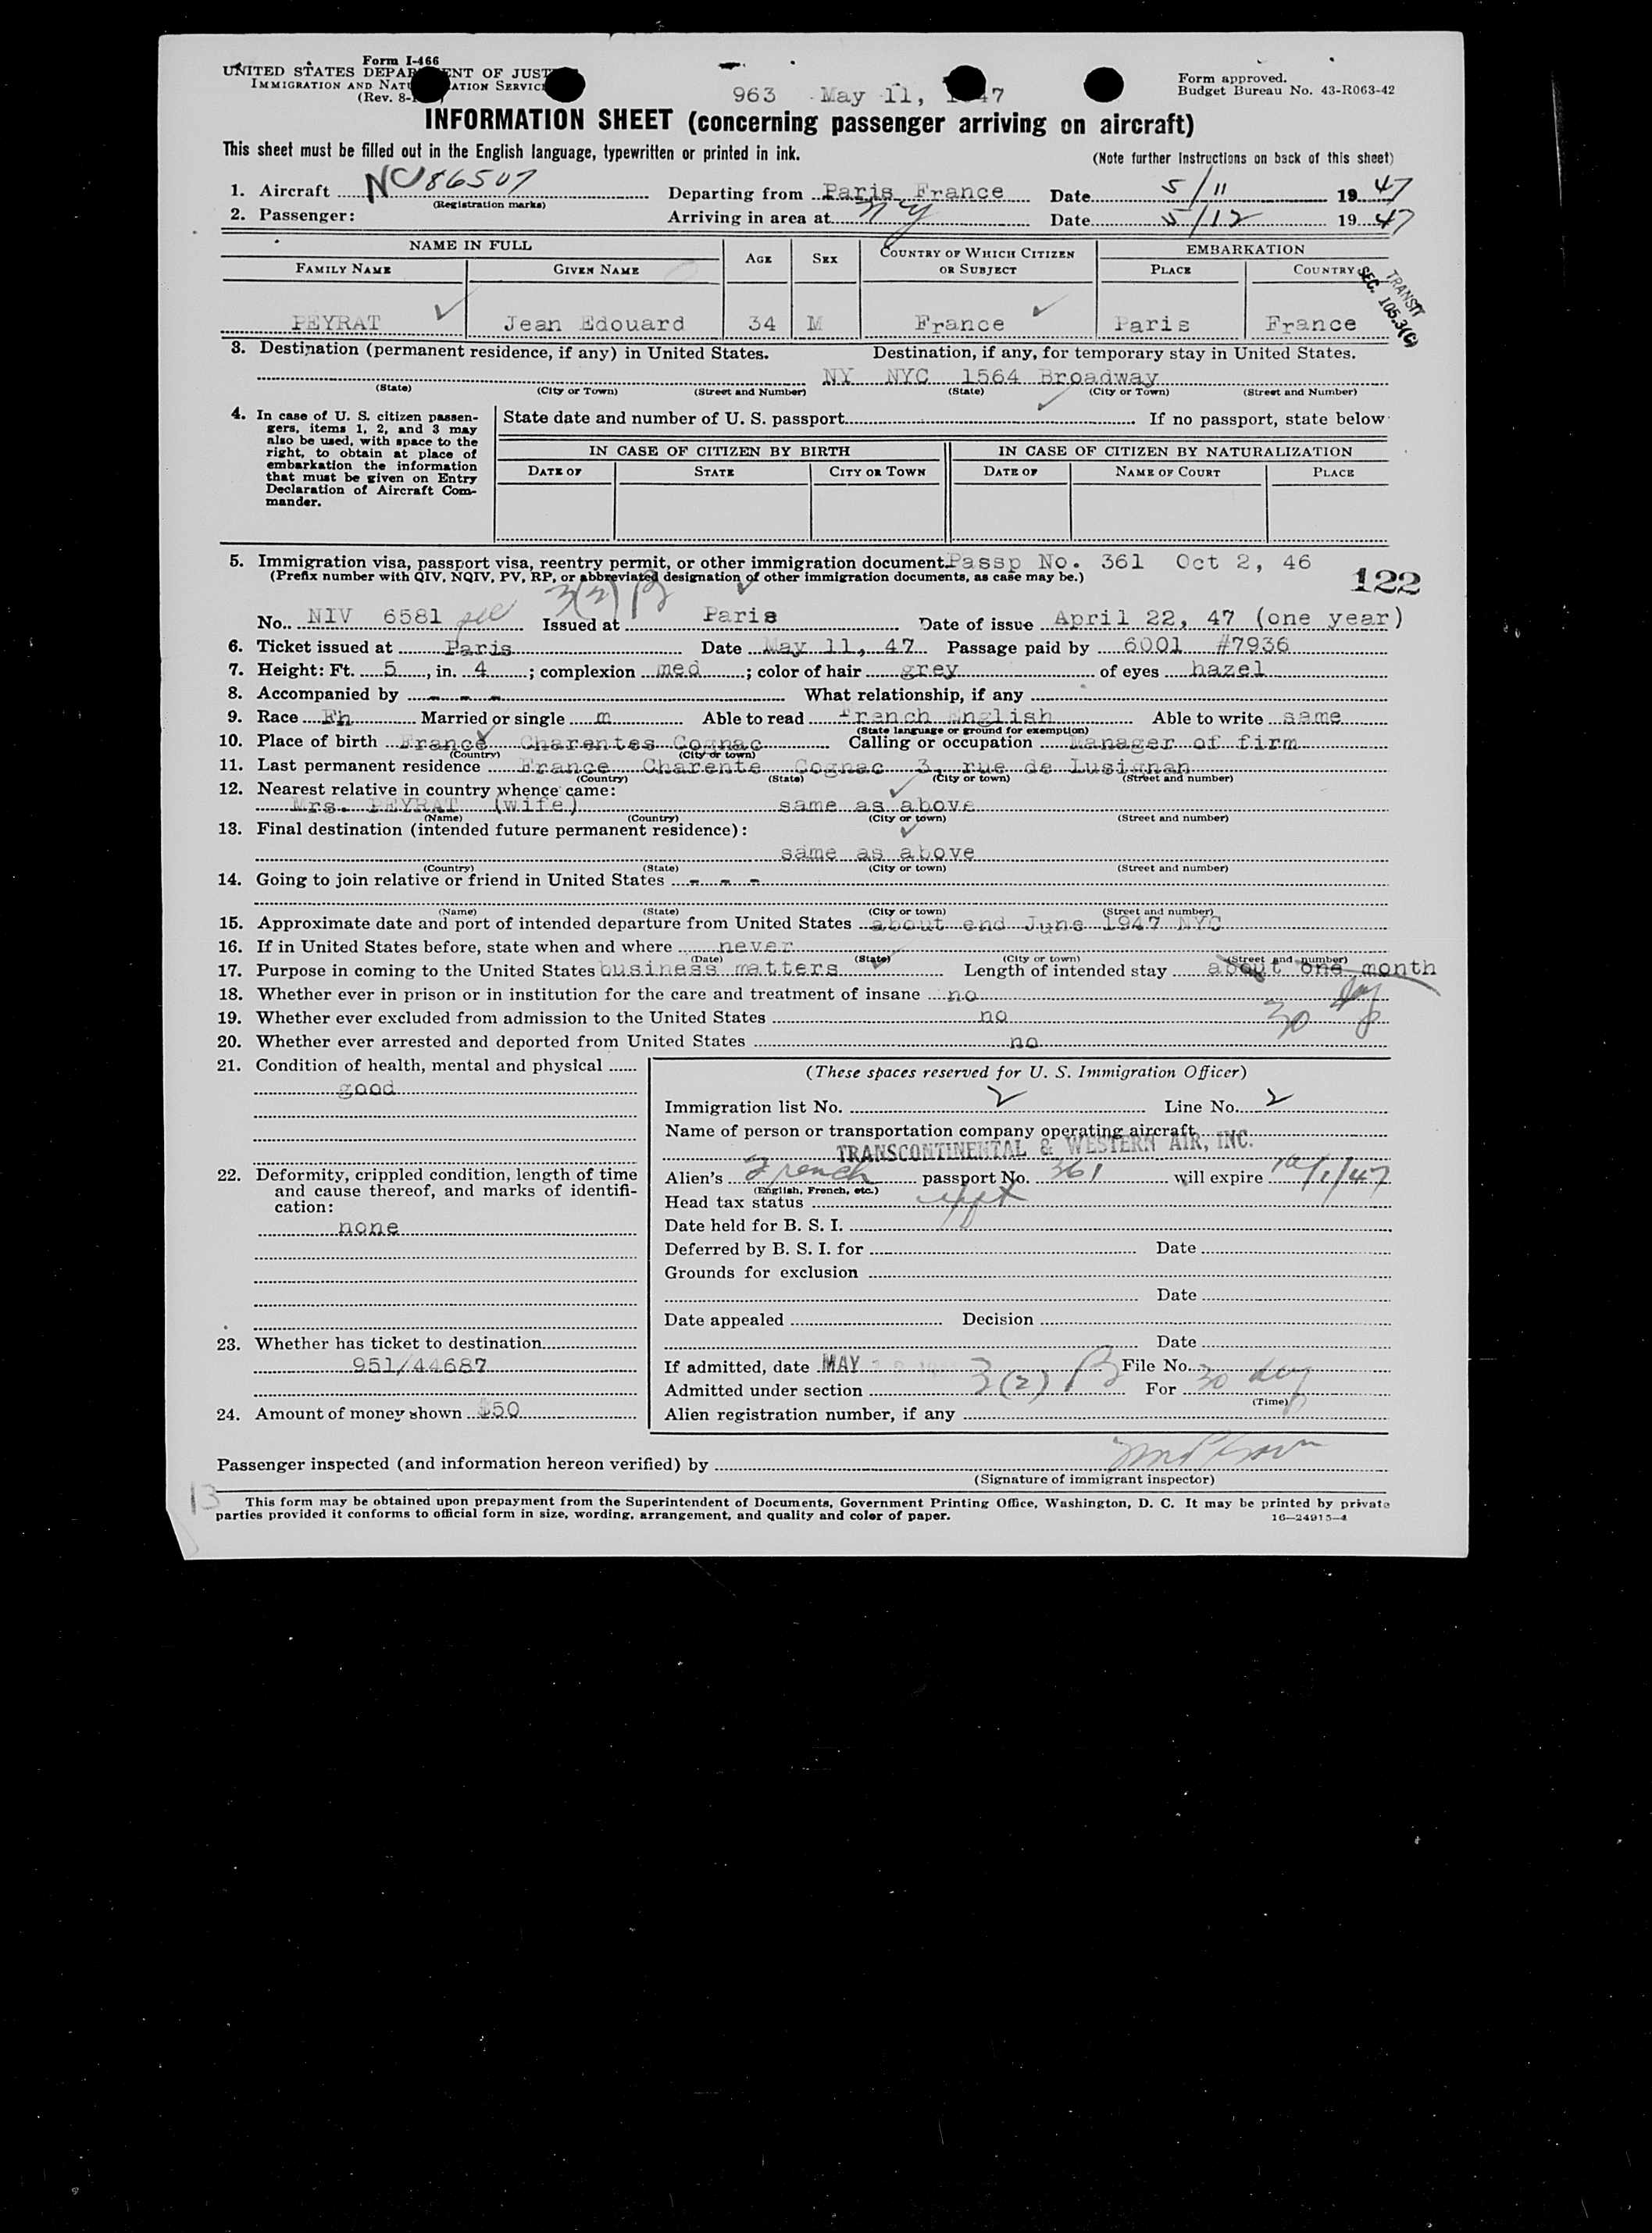 Form I-466
UNITED STATES DEPARTMENT OF JUSTICE
IMMIGRATION AND NATURALIZATION SERVICE
(Rev. 8-
Form approved.
Budget Bureau No. 43-R063-42
963 May 11, 1947
INFORMATION SHEET (concerning passenger arriving on aircraft)
This sheet must be filled out in the English language, typewritten or printed in ink. (Note further instructions on back of this sheet)
1. Aircraft NC 86507 Departing from Paris France Date 5/11 1947
(Registration marks)
2. Passenger: Arriving in area at NY Date 5/12 1947
NAME IN FULL AGE SEX COUNTRY OF WHICH CITIZEN OR SUBJECT EMBARKATION
FAMILY NAME GIVEN NAME PLACE COUNTRY
TRANSIT
SEC. 105.3(C)
PEYRAT Jean Edouard 34 M France Paris France
3. Destination (permanent residence, if any) in United States. Destination, if any, for temporary stay in United States.
NY NYC 1564 Broadway
(State) (City or Town) (Street and Number) (State) (City or Town) (Street and Number)
4. In case of U. S. citizen passengers, items 1, 2, and 3 may also be used, with space to the right, to obtain at place of embarkation the information that must be given on Entry Declaration of Aircraft Commander.
State date and number of U. S. passport If no passport, state below
IN CASE OF CITIZEN BY BIRTH IN CASE OF CITIZEN BY NATURALIZATION
DATE OF STATE CITY OR TOWN DATE OF NAME OF COURT PLACE
5. Immigration visa, passport visa, reentry permit, or other immigration document. Passp No. 361 Oct 2, 46
(Prefix number with QIV, NQIV, PV, RP, or abbreviated designation of other immigration documents, as case may be.)
122
3(2) B
No. NIV 6581 Issued at Paris Date of issue April 22, 47 (one year)
6. Ticket issued at Paris Date May 11, 47 Passage paid by 6001 #7936
7. Height: Ft. 5, in. 4; complexion med; color of hair grey of eyes hazel
8. Accompanied by - - - What relationship, if any
9. Race Fh Married or single m Able to read French English Able to write same
(State language or ground for exemption)
10. Place of birth France Charentes Cognac Calling or occupation Manager of firm
(Country) (City or town)
11. Last permanent residence France Charente Cognac 3, rue de Lusignan
(Country) (State) (City or town) (Street and number)
12. Nearest relative in country whence came:
Mrs. PEYRAT (wife) same as above
(Name) (Country) (City or town) (Street and number)
13. Final destination (intended future permanent residence):
same as above
(Country) (State) (City or town) (Street and number)
14. Going to join relative or friend in United States - - -
(Name) (State) (City or town) (Street and number)
15. Approximate date and port of intended departure from United States about end June 1947 NYC
16. If in United States before, state when and where never
(Date) (State) (City or town) (Street and number)
17. Purpose in coming to the United States business matters Length of intended stay about one month
18. Whether ever in prison or in institution for the care and treatment of insane no
30 days
19. Whether ever excluded from admission to the United States no
20. Whether ever arrested and deported from United States no
21. Condition of health, mental and physical
good
22. Deformity, crippled condition, length of time and cause thereof, and marks of identification:
none
23. Whether has ticket to destination
951/44687
24. Amount of money shown $50
(These spaces reserved for U. S. Immigration Officer)
Immigration list No. 2 Line No. 2
Name of person or transportation company operating aircraft
TRANSCONTINENTAL & WESTERN AIR, INC.
Alien's French passport No. 361 will expire 10/1/47
(English, French, etc.)
Head tax status
Date held for B. S. I.
Deferred by B. S. I. for Date
Grounds for exclusion
Date
Date appealed Decision
Date
If admitted, date MAY File No.
Admitted under section 3(2) B For 30 days
(Time)
Alien registration number, if any
Passenger inspected (and information hereon verified) by
(Signature of immigrant inspector)
13
This form may be obtained upon prepayment from the Superintendent of Documents, Government Printing Office, Washington, D. C. It may be printed by private
parties provided it conforms to official form in size, wording, arrangement, and quality and color of paper. 16—24915-4